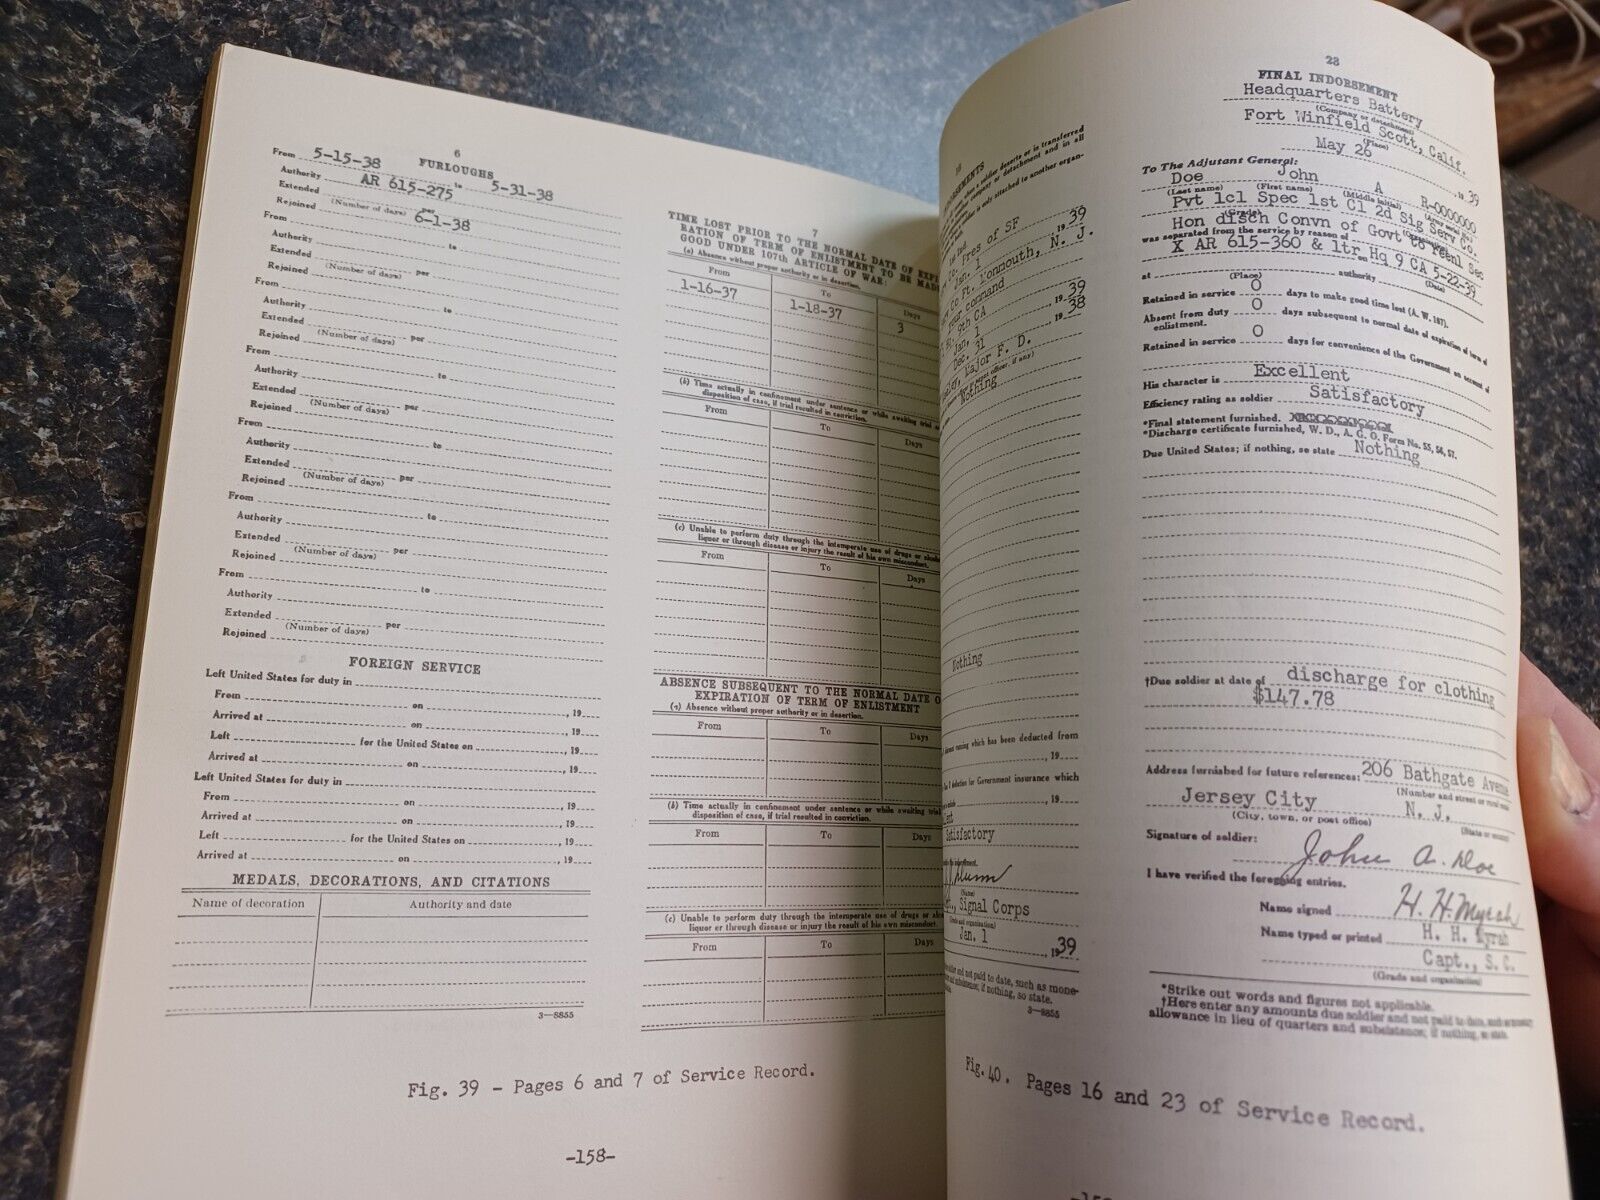 6
FURLOUGHS
From 5-15-38 to 5-31-38
Authority AR 615-275
Extended per
(Number of days)
Rejoined 6-1-38
From to
Authority
Extended per
(Number of days)
Rejoined
From to
Authority
Extended per
(Number of days)
Rejoined
From to
Authority
Extended per
(Number of days)
Rejoined
From to
Authority
Extended per
(Number of days)
Rejoined
From to
Authority
Extended per
(Number of days)
Rejoined
From to
Authority
Extended per
(Number of days)
Rejoined
FOREIGN SERVICE
Left United States for duty in
From on , 19
Arrived at on , 19
Left for the United States on , 19
Arrived at on , 19
Left United States for duty in
From on , 19
Arrived at on , 19
Left for the United States on , 19
Arrived at on , 19
MEDALS, DECORATIONS, AND CITATIONS
Name of decoration Authority and date
3—8855
7
TIME LOST PRIOR TO THE NORMAL DATE OF EXPI-
RATION OF TERM OF ENLISTMENT TO BE MADE
GOOD UNDER 107th ARTICLE OF WAR:
(a) Absence without proper authority or in desertion.
From To Days
1-16-37 1-18-37 3
(b) Time actually in confinement under sentence or while awaiting trial
disposition of case, if trial resulted in conviction.
From To Days
(c) Unable to perform duty through the intemperate use of drugs or
liquor or through disease or injury the result of his own misconduct.
From To Days
ABSENCE SUBSEQUENT TO THE NORMAL DATE O
EXPIRATION OF TERM OF ENLISTMENT
(a) Absence without proper authority or in desertion.
From To Days
(b) Time actually in confinement under sentence or while awaiting trial
disposition of case, if trial resulted in conviction.
From To Days
(c) Unable to perform duty through the intemperate use of drugs or
liquor or through disease or injury the result of his own misconduct.
From To Days
Fig. 39 - Pages 6 and 7 of Service Record.
-158-
a soldier deserts or is transferred
company or detachment and in all
is only attached to another organ-
Pres of SF
Jan. 1 19 39
Ft. Monmouth, N. J.
Your command
9th CA
Jan. 1 , 19 39
Dec. 31 19 38
Major F. D.
Nothing
Nothing
which has been deducted from
, 19
deduction for Government insurance which
, 19
Satisfactory
(Name)
Signal Corps
(Grade and organization)
Jan. 1 , 19 39
and not paid to date, such as mone-
and subsistence; if nothing, so state.
3—8855
23
FINAL INDORSEMENT
Headquarters Battery
(Company or detachment)
Fort Winfield Scott, Calif.
(Place)
May 26 , 19 39
To The Adjutant General:
Doe John A R-0000000
(Last name) (First name) (Middle initial) (Army serial No.)
Pvt 1cl Spec 1st Cl 2d Sig Serv Co.
(Grade) (Organization)
was separated from the service by reason of
Hon disch Convn of Govt to reenl Sec
X AR 615-360 & ltr Hq 9 CA 5-22-39
on
(Date)
at authority
(Place)
Retained in service 0 days to make good time lost (A. W. 107).
Absent from duty 0 days subsequent to normal date of expiration of term of
enlistment.
Retained in service 0 days for convenience of the Government on account of
His character is Excellent
Efficiency rating as soldier Satisfactory
*Final statement furnished.
*Discharge certificate furnished, W. D., A. G. O. Form No. 55, 56, 57.
Due United States; if nothing, so state Nothing
†Due soldier at date of discharge for clothing
$147.78
Address furnished for future references: 206 Bathgate Avenue
(Number and street or rural
Jersey City N. J.
(City, town, or post office) (State or
Signature of soldier:
John A. Doe
I have verified the foregoing entries.
Name signed H. H. Myrah
Name typed or printed H. H. Myrah
Capt., S. C.
(Grade and organization)
*Strike out words and figures not applicable.
†Here enter any amounts due soldier and not paid to date, such as monetary
allowance in lieu of quarters and subsistence; if nothing, so state.
Fig. 40. Pages 16 and 23 of Service Record.